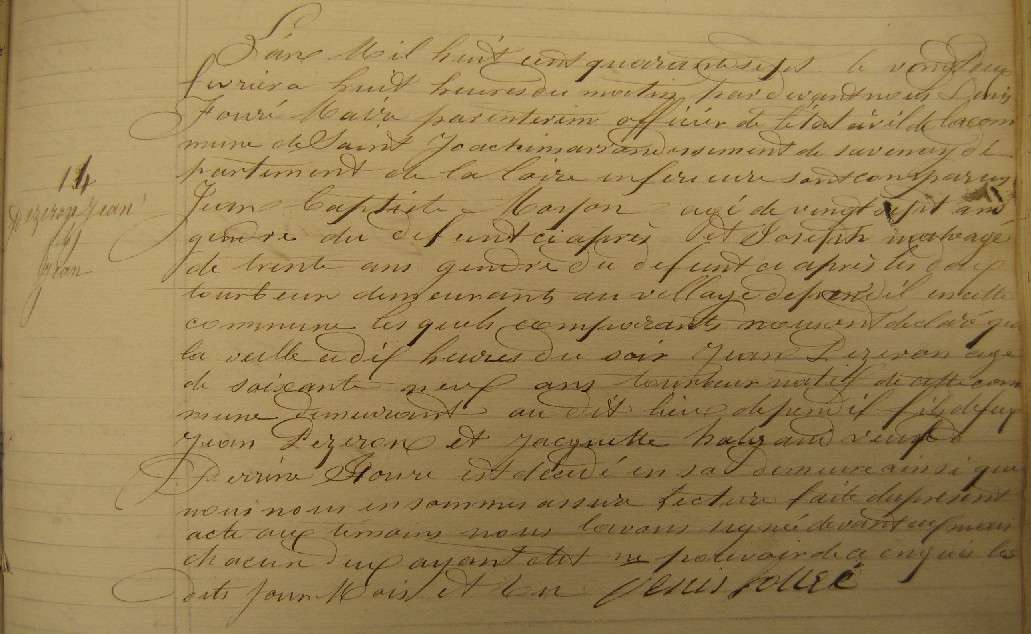 L'an Mil huit cent quarante sept le vingt deux
fevrier a huit heures du matin par devant nous Denis
Fouré Maire par interim officier de l'état civil de la com
mune de Saint Joachim arrondissement de savenay dé
partement de la loire inferieure sont comparus
14
Jean Baptiste Moyon agé de vingt sept ans
Dezeron Jean
gendre du defunt ci après et Joseph mahé age
de trente ans gendre du defunt ci après les deux
tourbeur demeurants au village de pendil en cette
commune les quels comparants nous ont declaré que
la veille a dix heures du soir Jean Dezeron age
de soixante neuf ans tourbeur natif de cette com
mune demeurant au dit lieu de pendil fils de feu
Jean Dezeron et Jacquette veuf de
Perrine est décédé en sa demeure ainsi que
nous nous en sommes assuré lecture faite du present
acte aux temoins nous l'avons signé devant eux mais
chacun d'eux ayant dit ne pouvoir de ce enquis les
dits Jour Mois et an Denis fouré